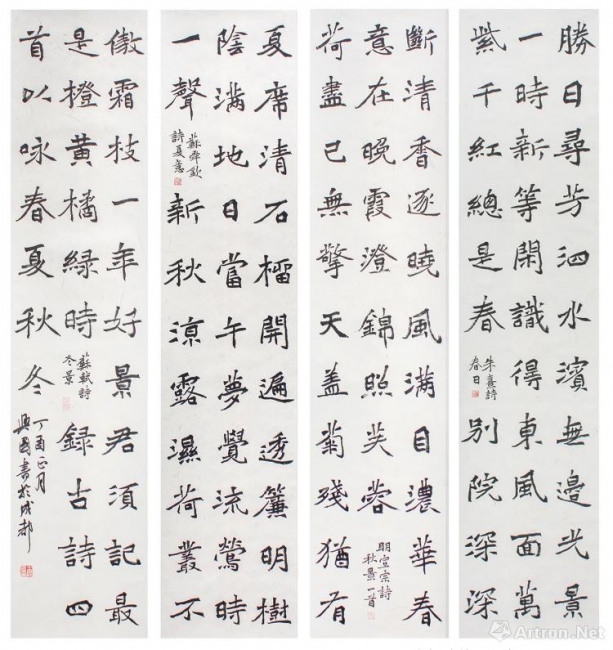 勝日尋芳泗水濱無邊光景
一時新等閑識得東風面萬
紫千紅總是春
朱熹詩
春日
別院深深
斷清香逐曉風滿目濃華春
意在晚霞澄錦照芙蓉
明宣宗詩
秋景一首
荷盡已無擎天蓋菊殘猶有
夏席清石橊開遍透簾明樹
陰滿地日當午夢覺流鶯時
一聲
蘇舜欽
詩夏意
新秋涼露濕荷叢不
傲霜枝一年好景君須記最
是橙黃橘綠時
蘇軾詩
冬景
錄古詩四
首以咏春夏秋冬
丁酉正月
興國書於成都
Artron.Net